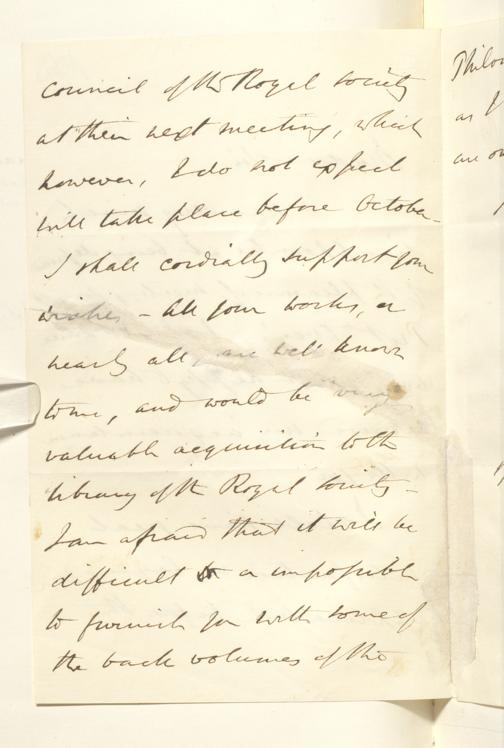 council of the Royal Society
at their next meeting, which
however, I do not expect
will take place before October –
I shall cordially support your
wishes – All your works, or
nearly all, are well known
to me, and would be very
valuable acquisition to the
library of the Royal Society –
I am afraid that it will be
difficult or impossible
to furnish you with some of
the back volumes of the
as
are